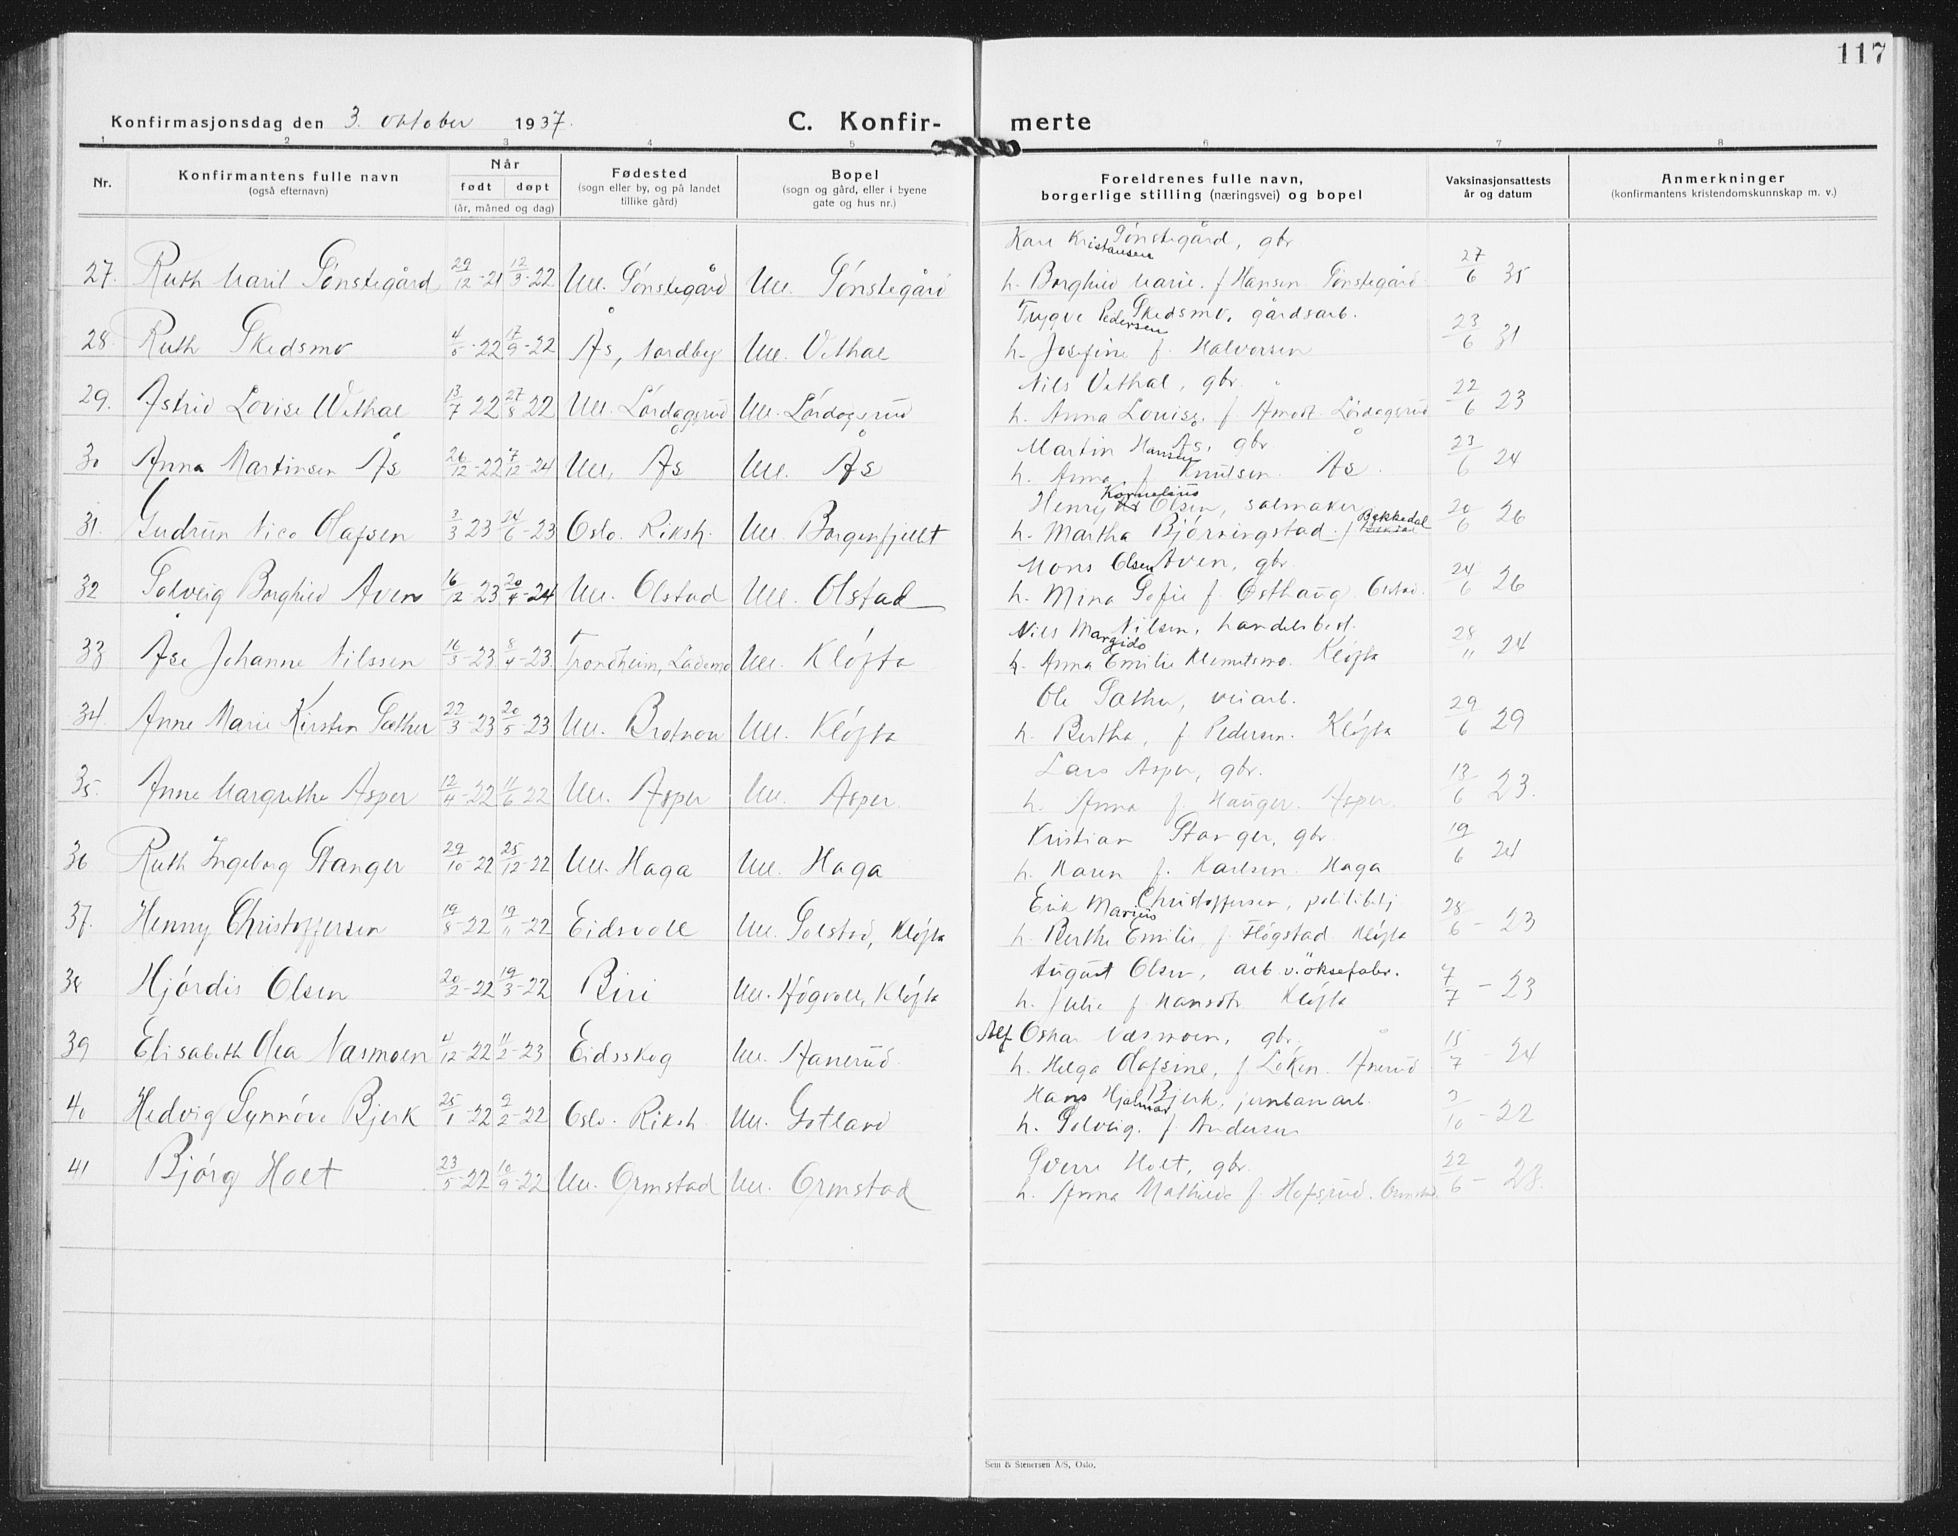 117
Konfirmasjonsdag den 3. oktober 1937.
C. Konfir- merte
1 2 3 4 5 6 7 8
Nr.
Konfirmantens fulle navn
(også efternavn)
Når
født døpt
(år, måned og dag)
Fødested
(sogn eller by, og på landet
tillike gård)
Bopel
(sogn og gård, eller i byene
gate og hus nr.)
Foreldrenes fulle navn,
borgerlige stilling (næringsvei) og bopel
Vaksinasjonsattests
år og datum
Anmerkninger
(konfirmantens kristendomskunnskap m. v.)
Kristiansen Tønstegård, gbr.
27. Ruth Marit Tønstegård 29/12-21 12/3-22 Ull. Tønstegård Ull. Tønstegård h. Borghild Marie. f Hansen Tønstegård 27/6 35
Trygve Pedersen Skedsmo, gårdsarb.
28. Ruth Skedsmo 4/5-22 17/9-22 Ås, Nordby Ull. Vethal h. Josefine f. Halvorsen 23/6 31
Nils Vethal, gbr.
29. Astrid Lovise Wethal 13/7 22 27/8 22 Ull. Lørdagsrud Ull. Lørdagsrud h. Anna Louise. f. Lørdagsrud 22/6 23
Martin Hansen Ås, gbr
30 Anna Martinsen Ås 26/12-22 7/12-24 Ull. Ås Ull. Ås h. Anna, f Knutsen. Ås. 23/6 24
Henry Kornelius Olsen, salmaker
31. Gudrun Nico Olafsen 3/3 23 24/6-23 Oslo. Riksh. Ull. Borgenfjellet h. Martha Bjørningstad. f Bekkedal 20/6 26
Mons Olsen Aven, gbr.
32 Solveig Borghild Aven 16/12-23 20/4-24 Ull. Olstad Ull. Olstad h. Mina Sofie f. Østhaug Olstad. 24/6 26
Nils Margido Nilsen, handelsbest.
33 Åse Johanne Nilssen 16/3-23 8/4-23 Trondheim, Lademo Ull. Kløfta h. Anna Emilie Klemetsmo. Kløfta 28/11 24
Ole Sæther, veiarb.
34. Anne Marie Kirsten Sæther 22/3-23 20/5-23 Ull. Ull. Kløfta h. Bertha, f Pedersen. Kløfta 29/6 29
Lars Asper, gbr.
35. Anne Margrethe Asper 12/4-22 11/6 22 Ull. Asper Ull. Asper h. Anna f. Hauger. Asper 13/6 23.
Kristian Stanger, gbr.
36 Ruth Ingeborg Stanger 29/10-22 25/12-22 Ull. Haga Ull. Haga h. Karen f. Karlsen. Haga 19/6 24
Erik Marius Christoffersen, politibetj
37. Henny Christoffersen 19/8-22 19/11-22 Eidsvoll Ull. Solstad, Kløfta h. Berthe Emilie, f. Høgstad Kløfta 28/6-23
August Olsen, arb. v. øksefabr.
38 Hjørdis Olsen 20/2-22 19/3-22 Biri Ull. Høgvoll, Kløfta h. Julie f Hansdtr Kløfta 7/7-23
Alf Oskar Næsmoen, gbr.
39 Elisabeth Olea Næsmoen 4/12-22 11/2-23 Eidsskog Ull. Aanerud h. Helga Olafsine, f Løken. Ånerud 15/7-24
Hans Hjalmar Bjerk, jernbanarb.
40 Hedvig Synnøve Bjerk 25/1-22 9/2-22 Oslo. Riksh. Ull. Gotland h. Solveig. f. Andersen 3/10-22
Sverre Holt, gbr.
41 Bjørg Holt 23/5-22 10/9-22 Ull. Ormstad Ull. Ormstad h. Anna Mathilde f. Hofsrud. Ormstad 22/6-28.
Sem & Stenersen A/S, Oslo.